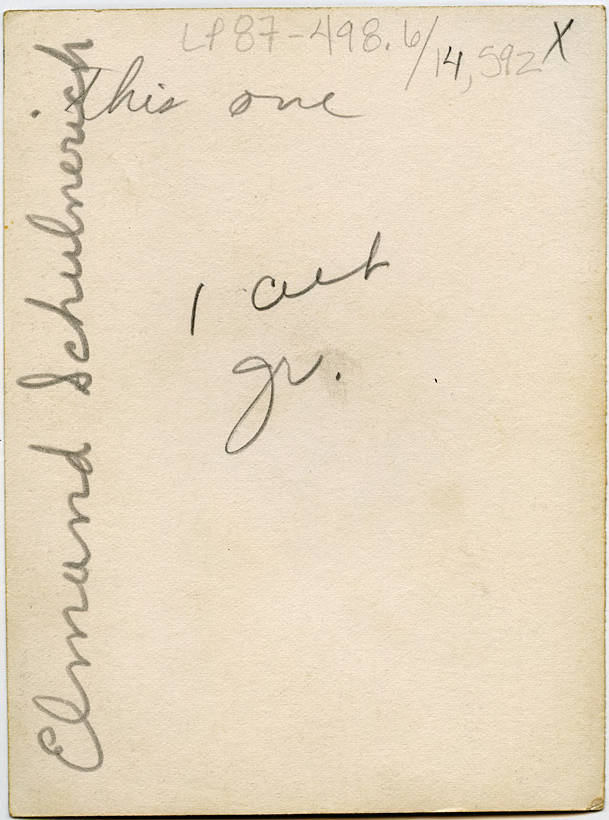 LP87-498.6/14,592 X
This one
1 cut
gr.
Elmund Schulmerich